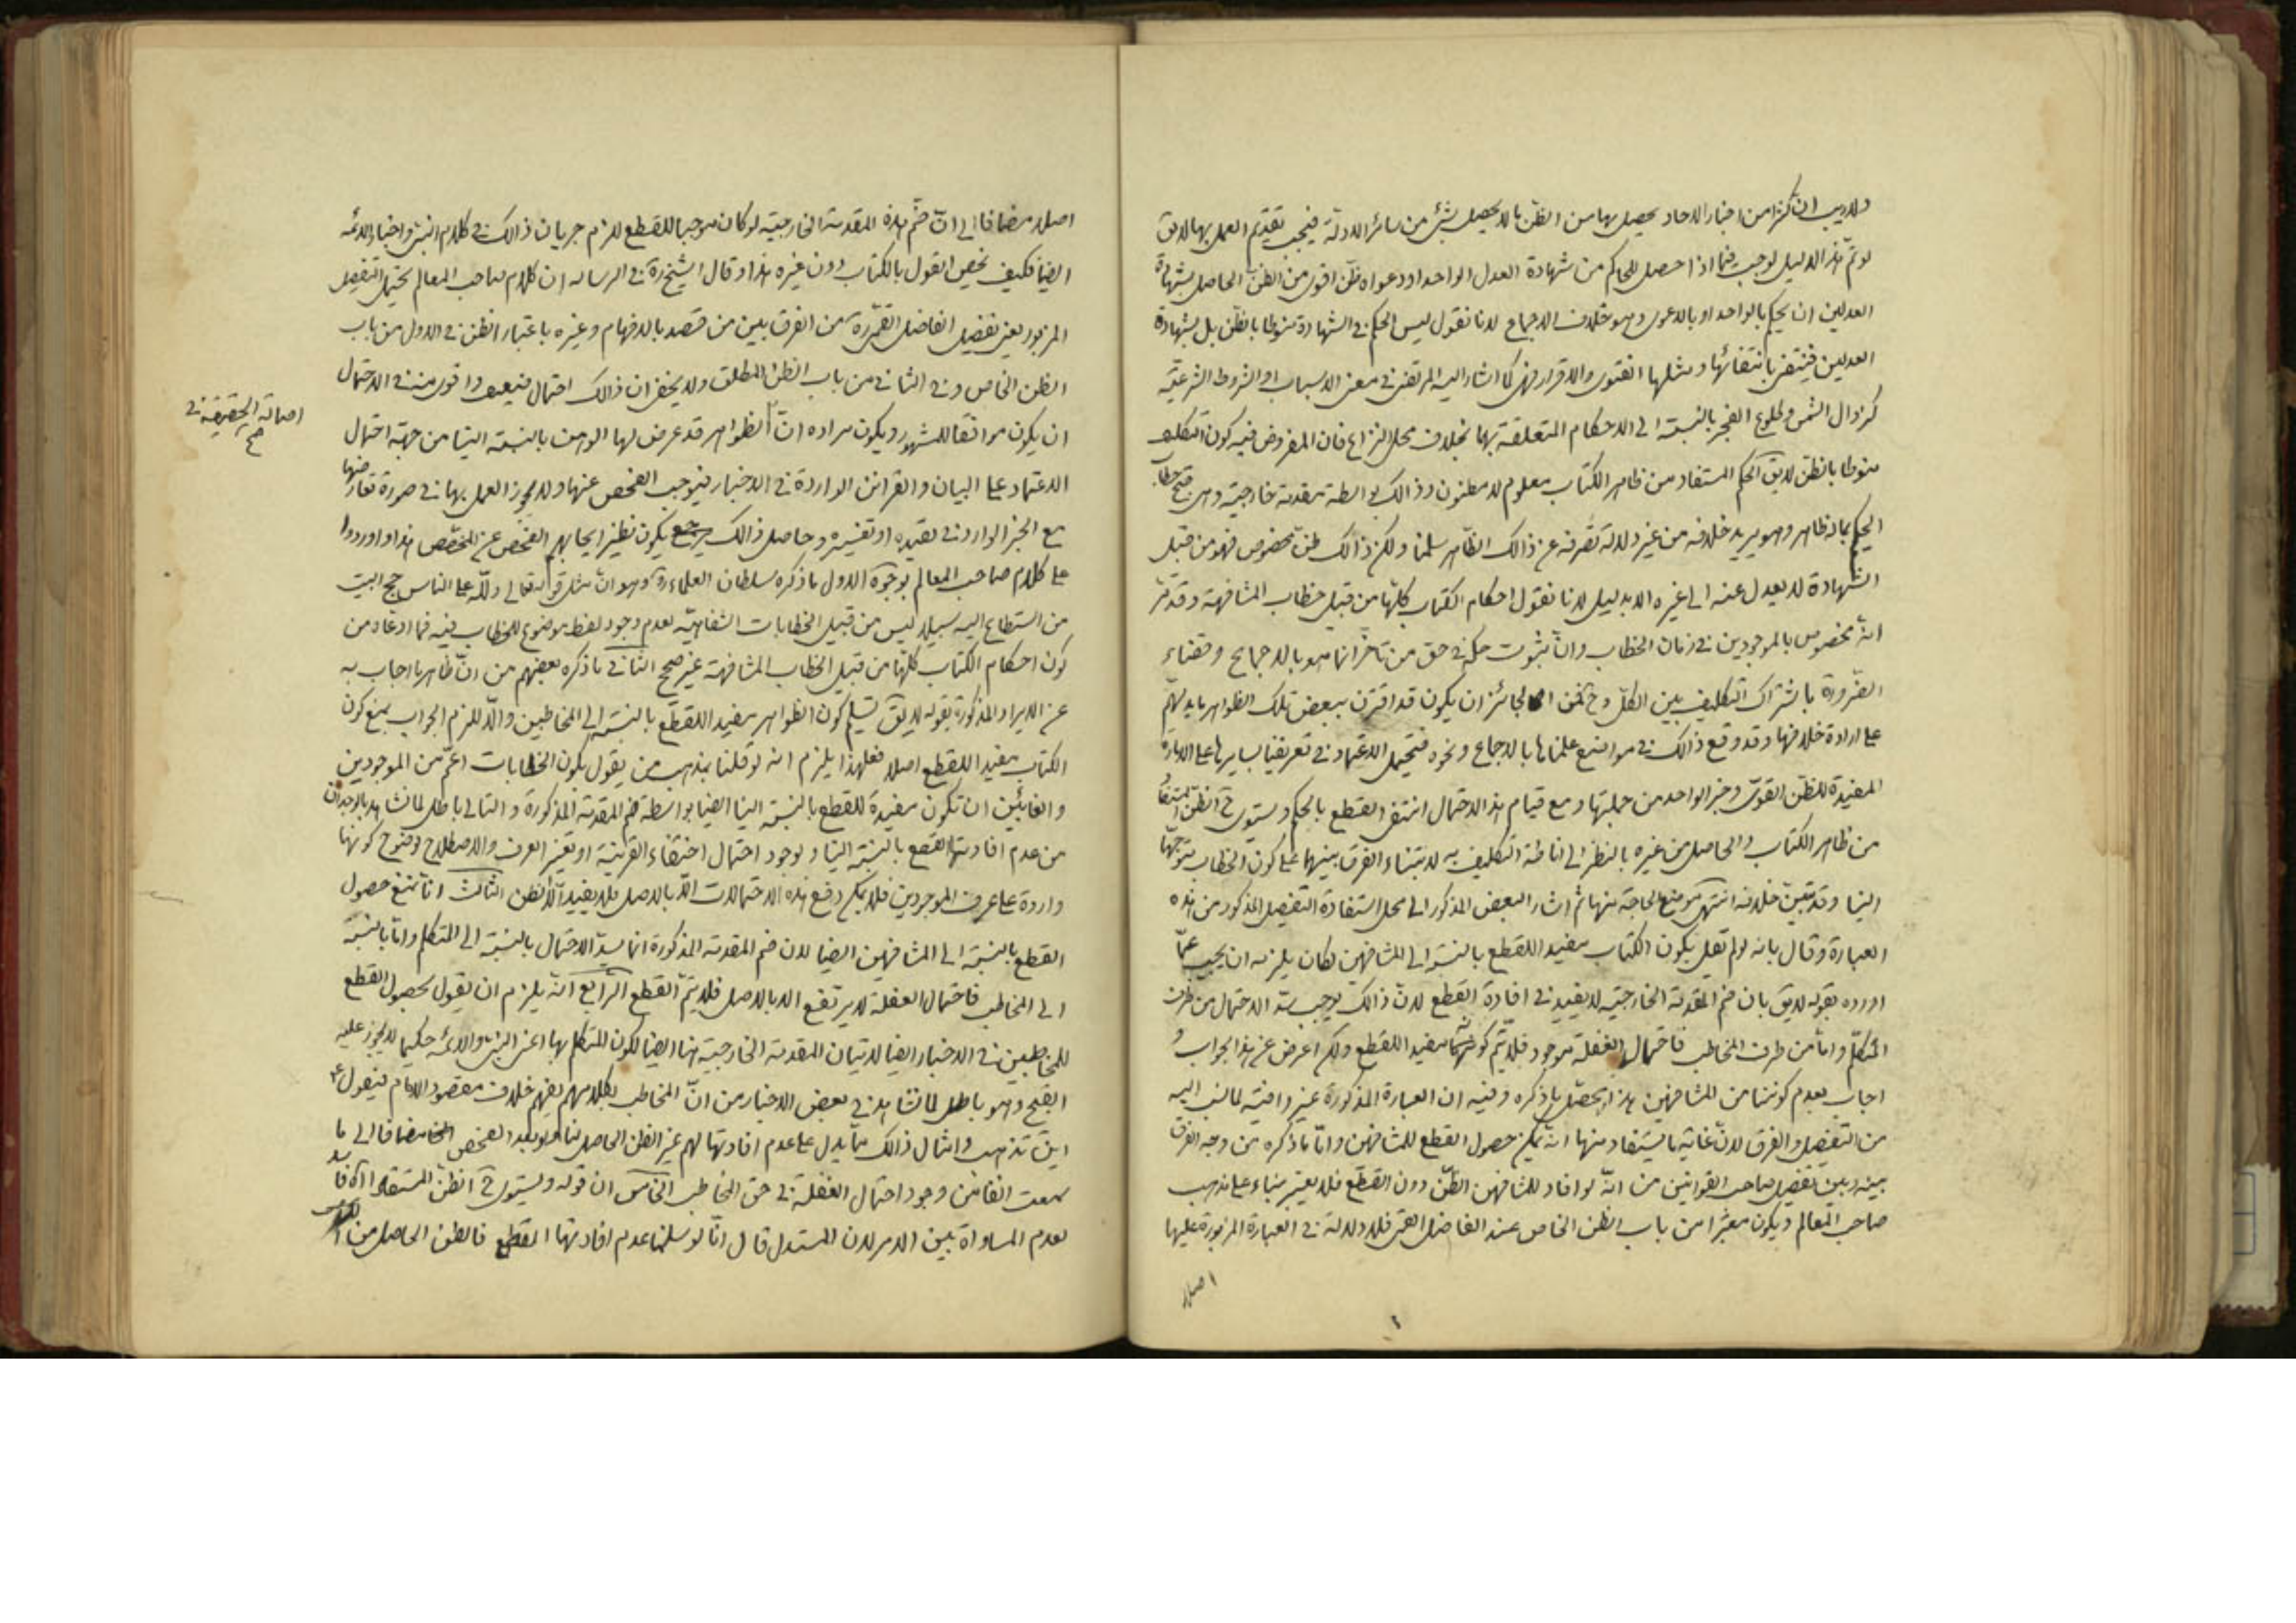 ولا ريب ان كثيرا من اخبار الاحاد يحصل بها من الظن ما لا يحصل بشئ من سائر الادلة فيجب تقديم العمل بها لا يق
لو تم هذا الدليل لوجب فيما اذا حصل للحاكم من شهادة العدل الواحد او دعواه ظن اقوى من الظن الحاصل بشهادة
العدلين ان يحكم بالواحد او بالدعوى وهو خلاف الاجماع لانا نقول ليس الحكم في الشهادة منوطا بالظن بل بشهادة
العدلين فينتفى بانتفائها ومثلها الفتوى والاقرار فهى كما اشار اليه المرتضى في معنى الاسباب او الشروط الشرعية
كزوال الشمس وطلوع الفجر بالنسبة الى الاحكام المتعلقة بها بخلاف محل النزاع فان المفروض فيه كون التكليف
منوطا بالظن لا يق الحكم المستفاد من ظاهر الكتاب معلوم لا مظنون وذالك بواسطة مقدمة خارجية وهى قبح خطاب
الحكيم بما له ظاهر وهو يريد خلافه من غير دلالة تصرفه عن ذالك الظاهر سلمنا ولكن ذالك ظن مخصوص فهو من قبيل
الشهادة لا يعدل عنه الى غيره الا بدليل لانا نقول احكام الكتاب كلها من قبيل خطاب المشافهة وقد مر
انه مخصوص بالموجودين في زمان الخطاب وان ثبوت حكمه في حق من تاخر انما هو بالاجماع وقضاء
الضرورة باشتراك التكليف بين الكل وح فمن الجائز ان يكون قد اقترن ببعض تلك الظواهر ما يدلهم
على ارادة خلافها وقد وقع ذالك في مواضع علمناها بالاجماع ونحوه فيحتمل الاعتماد في تعريفنا بسايرها على الامارة
المفيدة للظن القوى وخبر الواحد من جملتها ومع قيام هذا الاحتمال انتفى القطع بالحكم ويستوى ح الظن المستفاد
من ظاهر الكتاب والحاصل من غيره بالنظر الى اناطة التكليف به لابتناء الفرق بينهما على كون الخطاب متوجها
الينا وقد تبين خلافه انتهى موضع الحاجة منها ثم اشار البعض المذكور الى محل استفادة التفصيل المذكور من هذه
العبارة وقال بانه لو لم نقل بكون الكتاب مفيدا للقطع بالنسبة الى المشافهين لكان يلزمه ان يجيب عما
اورده بقوله لا يق بان ضم المقدمة الخارجية لا يفيد في افادة القطع لان ذالك يوجب سد الاحتمال من طرف
المتكلم واما من طرف المخاطب فاحتمال الغفلة موجود فلا يتم كونهما مفيدا للقطع ولكن اعرض عن هذا الجواب و
اجاب بعدم كوننا من المشافهين هذا محصل ما ذكره وفيه ان العبارة المذكورة غير وافية لما نسب اليه
من التفصيل والفرق لان غاية ما يستفاد منها انه يمكن حصول القطع للمشافهين واما ما ذكره من وجه الفرق
بينه وبين تفصيل صاحب القوانين من انه لو افاد للمشافهين الظن دون القطع فلا يعتبر بناء على مذهب
صاحب المعالم ويكون معتبرا من باب الظن الخاص عند الفاضل القمى فلا دلالة في العبارة المزبورة عليها
اصلا
اصلا مضافا الى ان ضم هذه المقدمة الخارجية لو كان موجبا للقطع لزم جريان ذالك في كلام النبى واخبار الائمه
ايضا فكيف يخص القول بالكتاب دون غيره هذا وقال الشيخ ره في الرساله ان كلام صاحب المعالم يحتمل التفصيل
المزبور يعنى تفصيل الفاضل القمى ره من الفرق بين من قصد بالافهام وغيره باعتبار الظن في الاول من باب
الظن الخاص وفى الثانى من باب الظن المطلق ولا يخفى ان ذالك احتمال ضعيف واقوى منه في الاحتمال
ان يكون موافقا للمشهور ويكون مراده ان الظواهر قد عرض لها الوهن بالنسبة الينا من جهة احتمال
اصالة الحقيقة في
صح
الاعتماد على البيان والقرائن الواردة في الاخبار فيوجب الفحص عنها ولا يجوز العمل بها في صورة تعارضها
مع الخبر الوارد في تقييده او تفسيره وحاصل ذالك يكون نظير ايجابهم الفحص عن المخصص هذا واوردوا
على كلام صاحب المعالم بوجوه الاول ما ذكره سلطان العلماء ره وهو ان مثل قوله تعالى ولله على الناس حج البيت
من استطاع اليه سبيلا ليس من قبيل الخطابات الشفاهية لعدم وجود لفظ موضوع للخطاب فيه فما ادعاه من
كون احكام الكتاب كلها من قبيل الخطاب المشافهة غير صحيح الثانى ما ذكره بعضهم من ان ظاهر ما اجاب به
عن الايراد المذكورة بقوله لا يق تسليم كون الظواهر مفيدا للقطع بالنسبة الى المخاطبين والا للزم الجواب بمنع كون
الكتاب مفيدا للقطع اصلا فعلى هذا يلزم انه لو قلنا بمذهب من يقول بكون الخطابات اعم من الموجودين
والغائبين ان تكون مفيدة للقطع بالنسبة الينا ايضا بواسطة ضم المقدمة المذكورة والتالى باطل لما نشاهد بالوجدان
من عدم افادتها القطع بالنسبة الينا ولوجود احتمال اختفاء القرينة او تغيير العرف والاصطلاح لوضوح كونها
واردة على عرف الموجودين فلا يمكن دفع هذه الاحتمالات الا بالاصل فلا يفيد الا الظن الثالث انا نمنع حصول
القطع بالنسبة الى المشافهين ايضا لان ضم المقدمة المذكورة انما يسد الاحتمال بالنسبة الى المتكلم واما بالنسبة
الى المخاطب فاحتمال الغفلة لا يرتفع الا بالاصل فلا يتم القطع الرابع انه يلزم ان يقول بحصول القطع
للمخاطبين في الاخبار ايضا لاتيان المقدمة الخارجية هنا ايضا لكون المتكلم بها اعنى النبى والائمة حكيما لا يجوز عليه
القبيح وهو باطل لما نشاهد في بعض الاخبار من ان المخاطب بكلامهم يفهم خلاف مقصود الامام فيقول ع
اين تذهب وامثال ذالك مما يدل على عدم افادتها لهم غير الظن الحاصل لنا ولو بعد الفحص مضافا الى ما
سمعت انفا من وجود احتمال الغفلة في حق المخاطب الخامس ان قوله ويستوى ح الظن المستفاد اه فاسد
لعدم المساواة بين الامر لان المستدل قال انا لو سلمنا عدم افادتها القطع فالظن الحاصل من